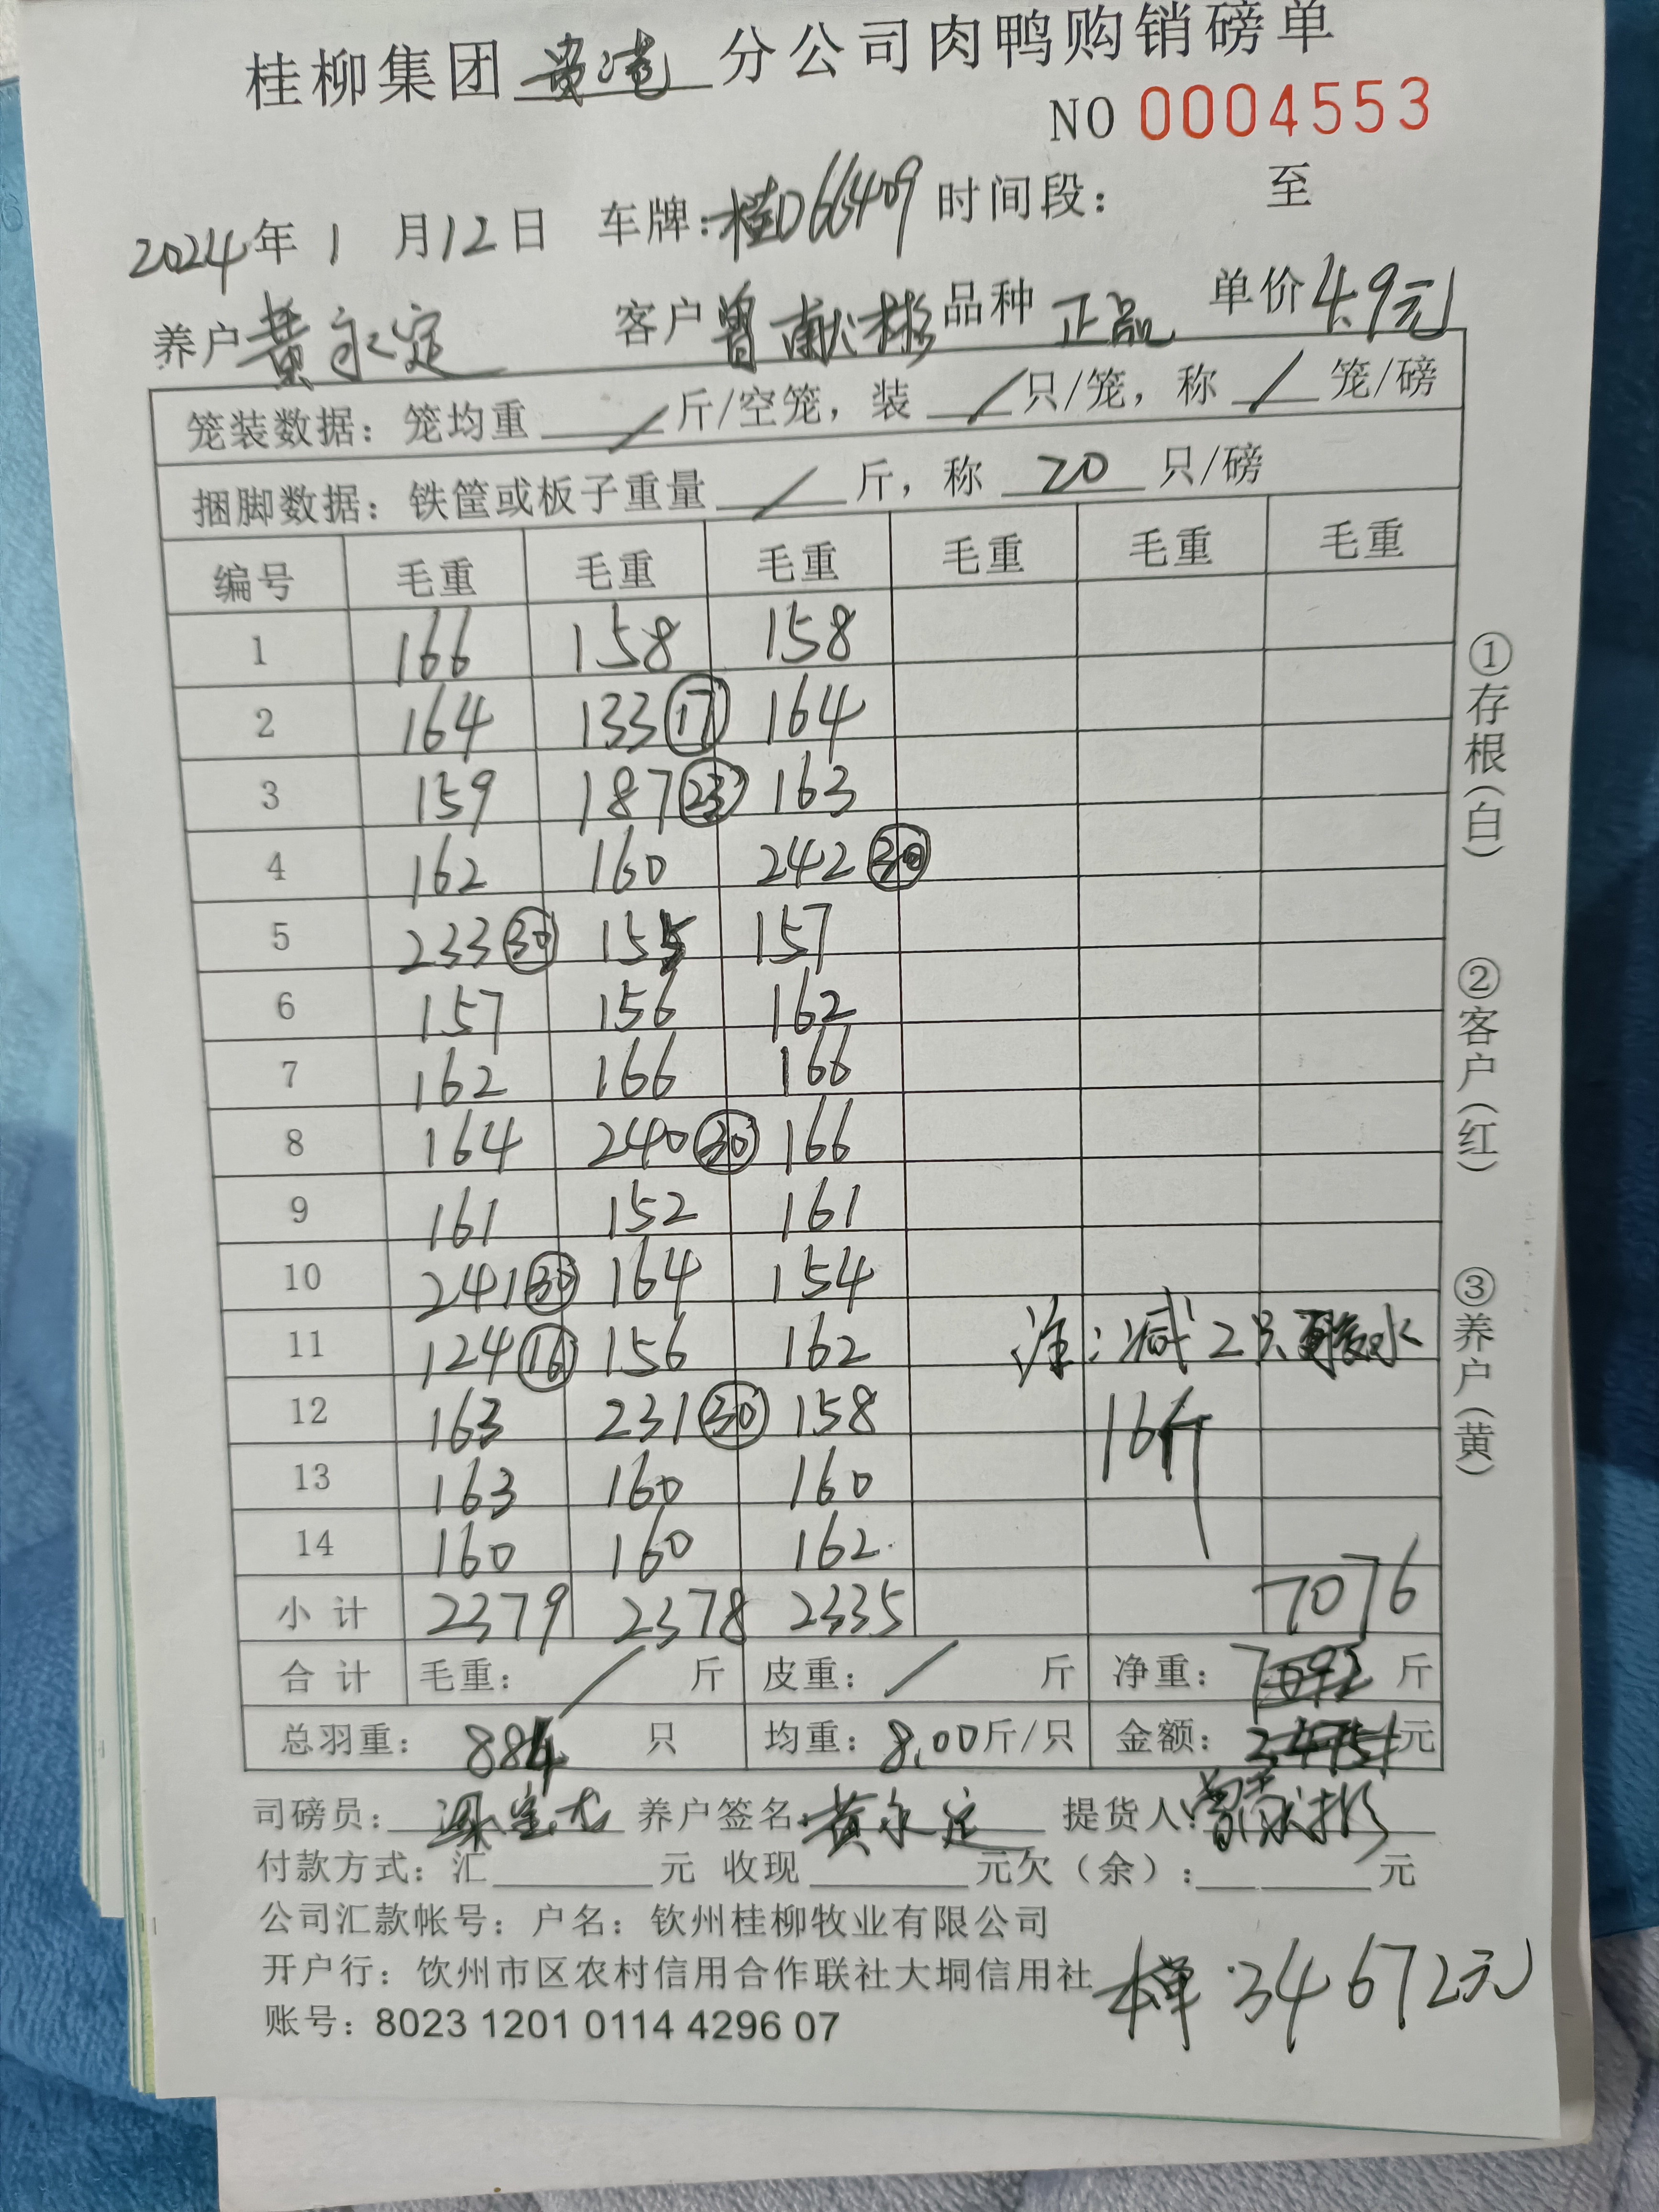 桂柳集团 贵港 分公司肉鸭购销磅单
NO 0004553
2024年 1 月12日 车牌:桂D66409 时间段: 至
养户 黄永定 客户 曾献彬 品种 正品 单价 4.9元
笼装数据: 笼均重 / 斤/空笼, 装 / 只/笼, 称 / 笼/磅
捆脚数据: 铁筐或板子重量 / 斤, 称 20 只/磅
编号 毛重 毛重 毛重 毛重 毛重 毛重
1 166 158 158
2 164 133 ⑰ 164
3 159 187 ㉓ 163
4 162 160 242 ㉚
5 233 ㉚ 155 157
6 157 156 162
7 162 166 166
8 164 240 ㉚ 166
9 161 152 161
10 241 ㉚ 164 154
11 124 ⑯ 156 162 注:减2只 水
12 163 231 ㉚ 158 16斤
13 163 160 160
14 160 160 162
小计 2379 2378 2335 7076
合计 毛重: / 斤 皮重: / 斤 净重: 7092 斤
总羽重: 884 只 均重: 8.00斤/只 金额: 34751元
司磅员: 养户签名: 黄永定 提货人: 曾献彬
付款方式: 汇 元 收现 元欠(余): 元
公司汇款帐号: 户名: 钦州桂柳牧业有限公司
开户行: 钦州市区农村信用合作联社大垌信用社
账号: 8023 1201 0114 4296 07
本单:34672元
①存根(白)
②客户(红)
③养户(黄)